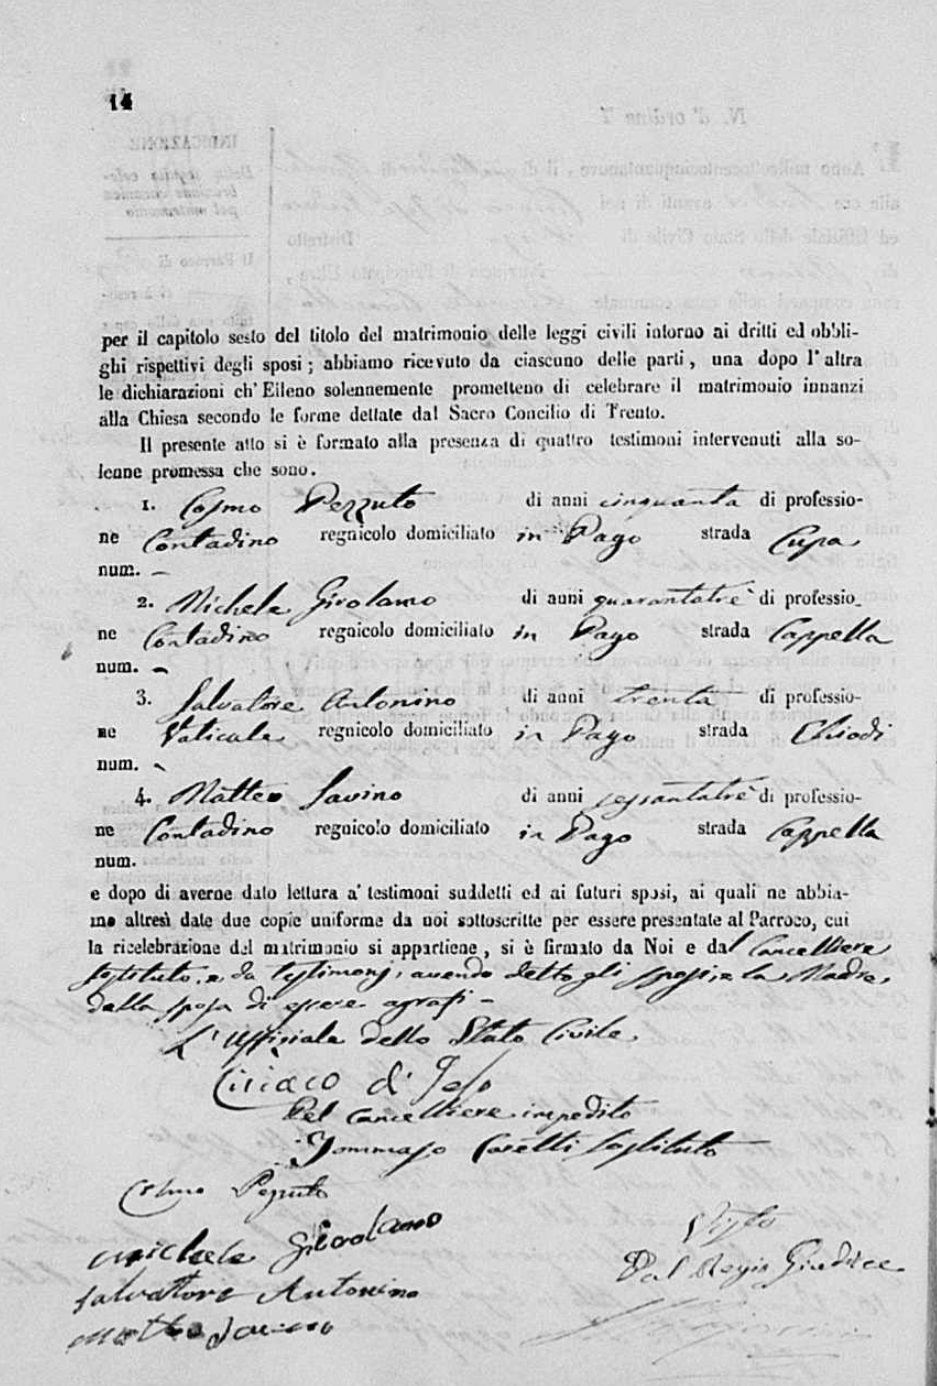 14
per il capitolo sesto del titolo del matrimonio delle leggi civili intorno ai dritti ed obbli-
ghi rispettivi degli sposi ; abbiamo ricevuto da ciascuno delle parti , una dopo l' altra
le dichiarazioni ch' Elleno solennemente promettono di celebrare il matrimonio innanzi
alla Chiesa secondo le forme dettate dal Sacro Concilio di Trento.
Il presente atto si è formato alla presenza di quattro testimoni intervenuti alla so-
lenne promessa che sono.
1. Cosmo Pezzuto di anni cinquanta di professio-
ne Contadino regnicolo domiciliato in Pago strada Cupa
num. —
2. Michele Girolamo di anni quarantatrè di professio-
ne Contadino regnicolo domiciliato in Pago strada Cappella
num. —
3. Salvatore Antonino di anni trenta di professio-
ne Vaticale regnicolo domiciliato in Pago strada Chiodi
num. -
4. Matteo Savino di anni sessantatrè di professio-
ne Contadino regnicolo domiciliato in Pago strada Cappella
num.
e dopo di averne dato lettura a' testimoni suddetti ed ai futuri sposi, ai quali ne abbia-
mo altresì date due copie uniforme da noi sottoscritte per essere presentate al Parroco, cui
la ricelebrazione del matrimonio si appartiene , si è firmato da Noi e dal Cancelliere
sostituto, e da testimonj, avendo detto gli sposi, e la Madre
della sposa di essere agrafi -
L' Uffiziale dello Stato Civile
Ciriaco d' Jeso
Pel Cancelliere impedito
Tommaso Caretti sostituto
Cosmo Pezzuto
Michele Girolamo
Salvattore Antonino
Matteo Savino
Visto
Dal Regio Giudice